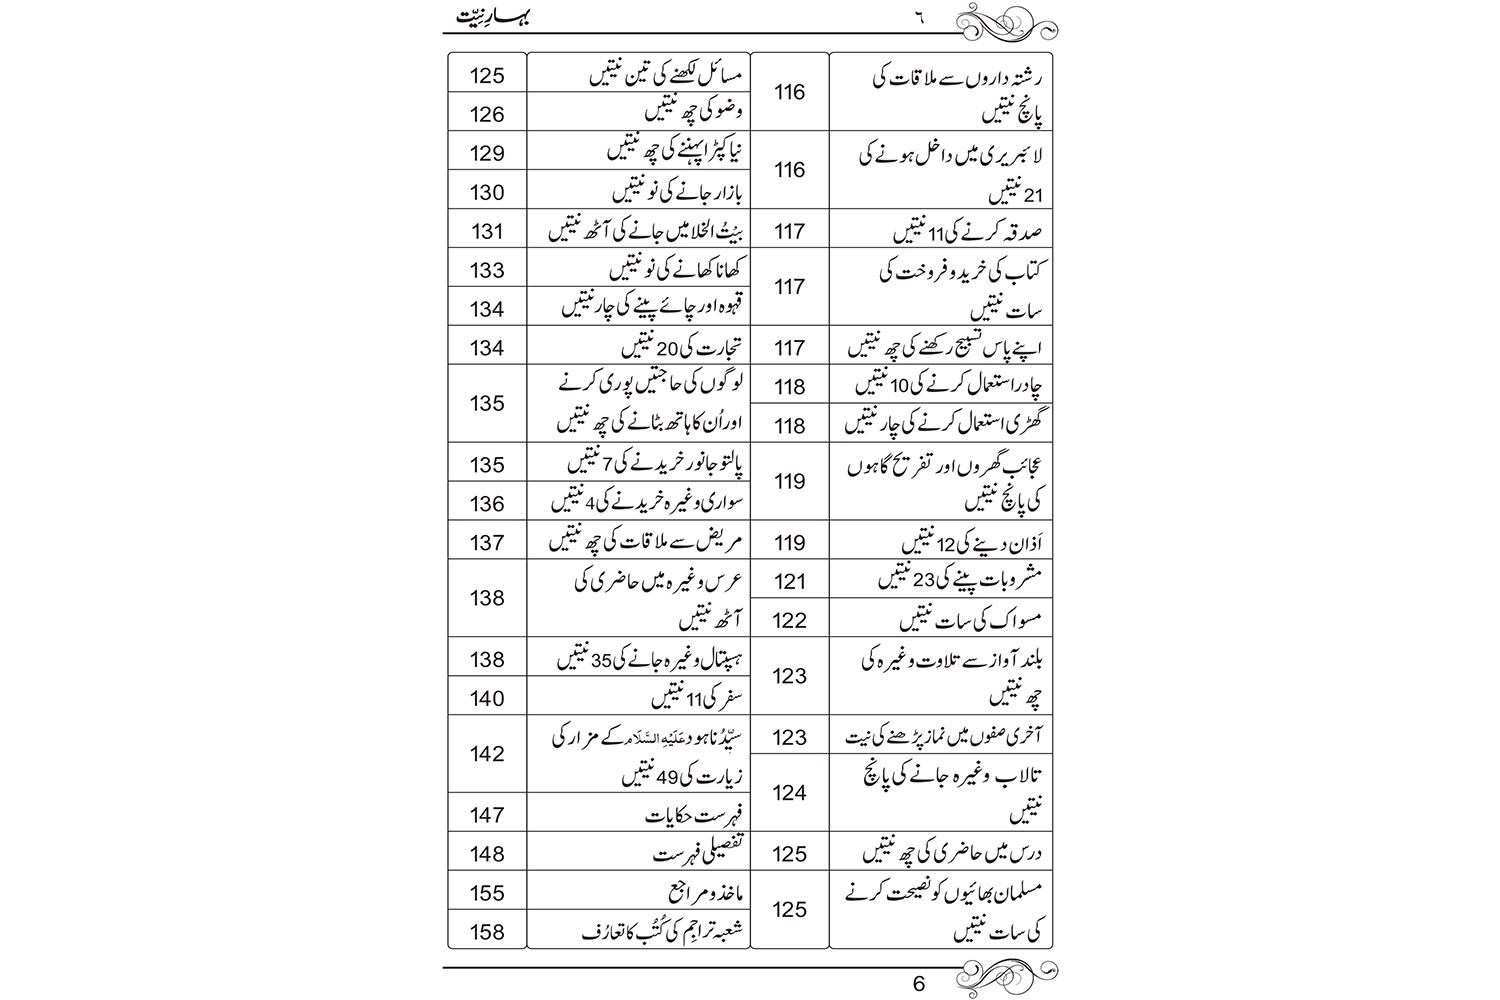 بہارِنیّت
٦
رشتہ داروں سے ملاقات کی
پانچ نیتیں
116
لائبریری میں داخل ہونے کی
21 نیتیں
116
صدقہ کرنے کی 11 نیتیں
117
کتاب کی خرید و فروخت کی
سات نیتیں
117
اپنے پاس تسبیح رکھنے کی چھ نیتیں
117
چادر استعمال کرنے کی 10 نیتیں
118
گھڑی استعمال کرنے کی چار نیتیں
118
عجائب گھروں اور تفریح گاہوں
کی پانچ نیتیں
119
اَذان دینے کی 12 نیتیں
119
مشروبات پینے کی 23 نیتیں
121
مسواک کی سات نیتیں
122
بلند آواز سے تلاوت وغیرہ کی
چھ نیتیں
123
آخری صفوں میں نماز پڑھنے کی نیت
123
تالاب وغیرہ جانے کی پانچ
نیتیں
124
درس میں حاضری کی چھ نیتیں
125
مسلمان بھائیوں کو نصیحت کرنے
کی سات نیتیں
125
مسائل لکھنے کی تین نیتیں
125
وضو کی چھ نیتیں
126
نیا کپڑا پہننے کی چھ نیتیں
129
بازار جانے کی نو نیتیں
130
بیْتُ الخلا میں جانے کی آٹھ نیتیں
131
کھانا کھانے کی نو نیتیں
133
قہوہ اور چائے پینے کی چار نیتیں
134
تجارت کی 20 نیتیں
134
لوگوں کی حاجتیں پوری کرنے
اور اُن کا ہاتھ بٹانے کی چھ نیتیں
135
پالتو جانور خریدنے کی 7 نیتیں
135
سواری وغیرہ خریدنے کی 4 نیتیں
136
مریض سے ملاقات کی چھ نیتیں
137
عرس وغیرہ میں حاضری کی
آٹھ نیتیں
138
ہسپتال وغیرہ جانے کی 35 نیتیں
138
سفر کی 11 نیتیں
140
سیّدُنا ہود عَلَیْہِ السَّلَام کے مزار کی
زیارت کی 49 نیتیں
142
فہرست حکایات
147
تفصیلی فہرست
148
ماخذ و مراجع
155
شعبہ تراجِم کی کُتُب کا تعارُف
158
6